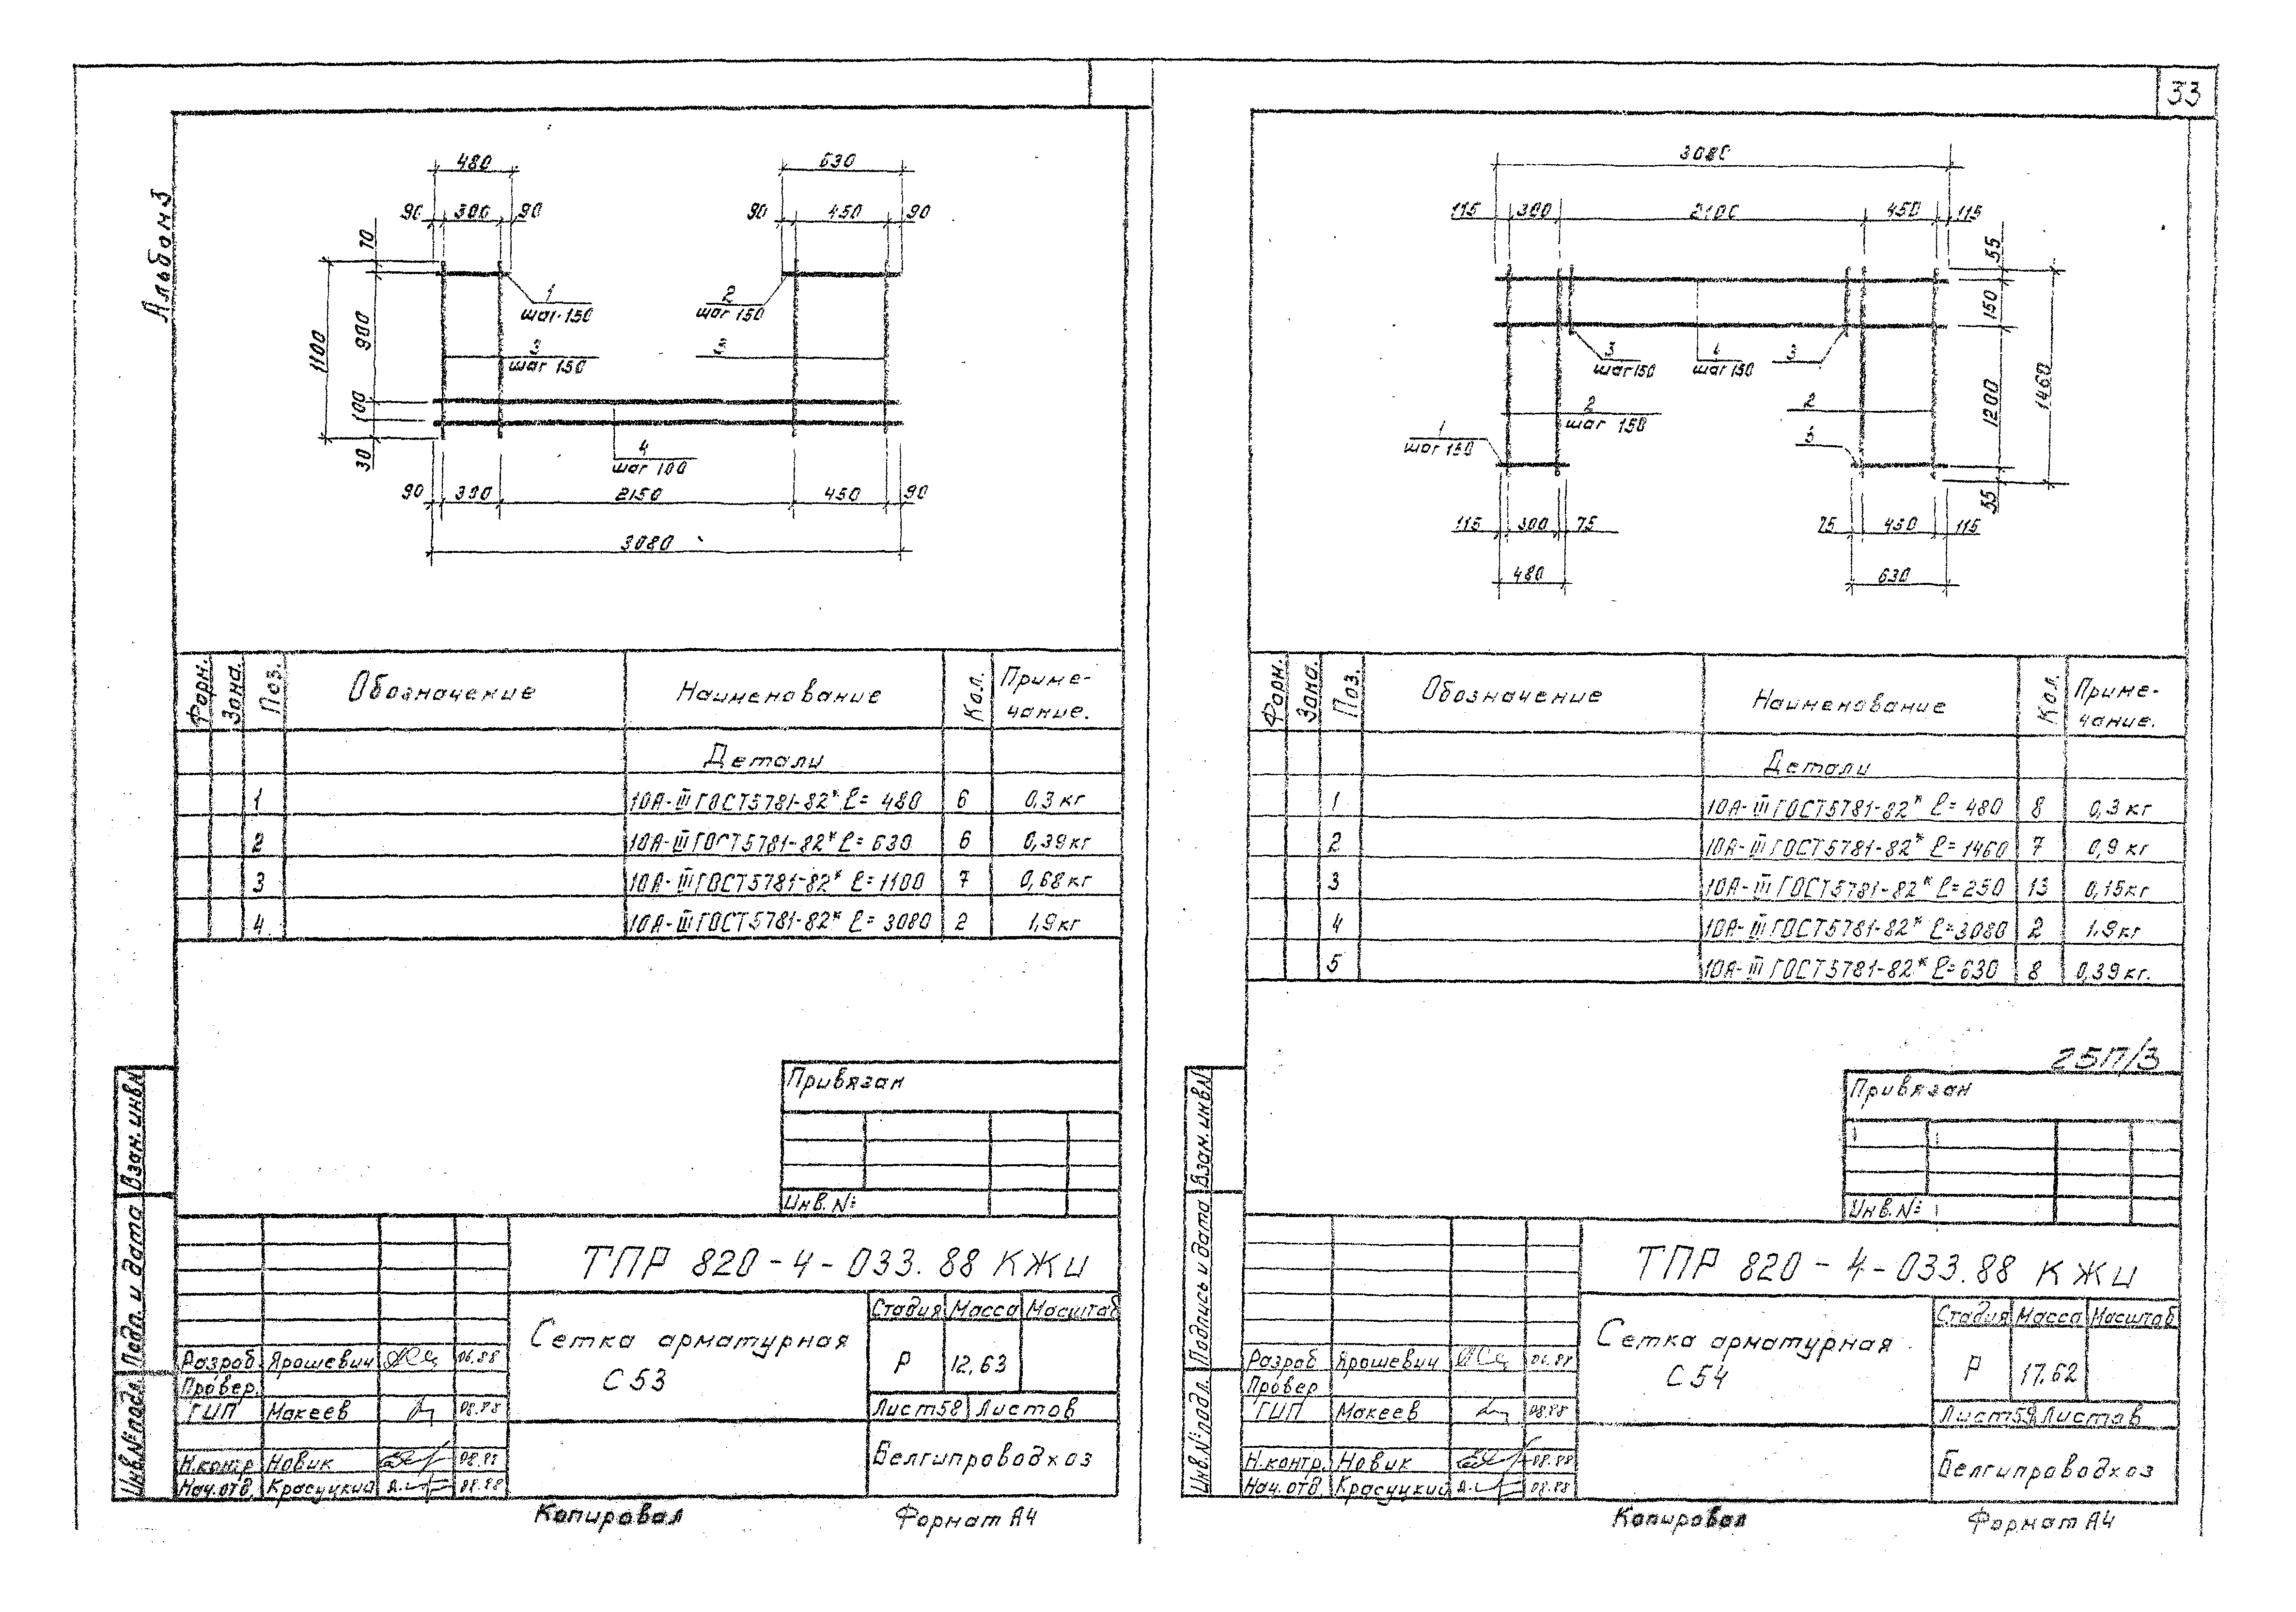 33
Альбом 3
480
630
90 300 90
90 450 90
70
900
1100
100
30
1
шаг 150
2
шаг 150
3
шаг 150
3
4
шаг 100
90 300 2150 450 90
3080
Форм.
Зона.
Поз.
Обозначение
Наименование
Кол.
Приме-
чание.
Детали
1 10А-III ГОСТ5781-82* ℓ= 480 6 0,3 кг
2 10А-III ГОСТ5781-82* ℓ= 630 6 0,39кг
3 10А-III ГОСТ5781-82* ℓ= 1100 7 0,68кг
4 10А-III ГОСТ5781-82* ℓ= 3080 2 1,9кг
Привязан
Инв. №
ТПР 820-4-033.88 КЖИ
Сетка арматурная
С 53
Стадия Масса Масштаб
Р 12,63
Лист58 Листов
Белгипроводхоз
Разраб Ярошевич 06.88
Провер.
ГИП Макеев 08.88
Н.контр Новик 08.88
Нач.отд. Красуцкий 08.88
Взам. инв.№
Подп. и дата
Инв.№подл.
Копировал
Формат А4
3080
115 300 2100 450 115
55
150
1200
1460
55
3
шаг 150
4
шаг 150
3
2
шаг 150
2
1
шаг 150
5
115 300 75
75 450 115
480
630
Форм.
Зона.
Поз.
Обозначение
Наименование
Кол.
Приме-
чание.
Детали
1 10А-III ГОСТ5781-82* ℓ= 480 8 0,3 кг
2 10А-III ГОСТ5781-82* ℓ= 1460 7 0,9 кг
3 10А-III ГОСТ5781-82* ℓ= 250 13 0,15кг
4 10А-III ГОСТ5781-82* ℓ=3080 2 1.9кг
5 10А-III ГОСТ5781-82* ℓ= 630 8 0,39кг.
25П/3
Привязан
Инв. №
ТПР 820-4-033.88 КЖИ
Сетка арматурная
С 54
Стадия Масса Масштаб
Р 17.62
Лист59 Листов
Белгипроводхоз
Разраб Ярошевич 06.88
Провер
ГИП Макеев 08.88
Н.контр. Новик 08.88
Нач.отд. Красуцкий 08.88
Взам. инв.№
Подпись и дата
Инв.№ подл.
Копировал
Формат А4